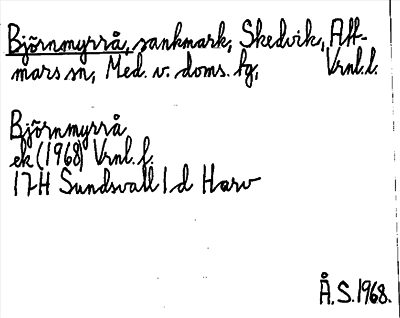 Björnmyrrå, sankmark, Skedvik, Att-
mars sn, Med. v. doms. tg, Vrnl.l.
Björnmyrrå
ek (1968) Vrnl. f.
17H Sundsvall 1 d Harv
Å.S. 1968.